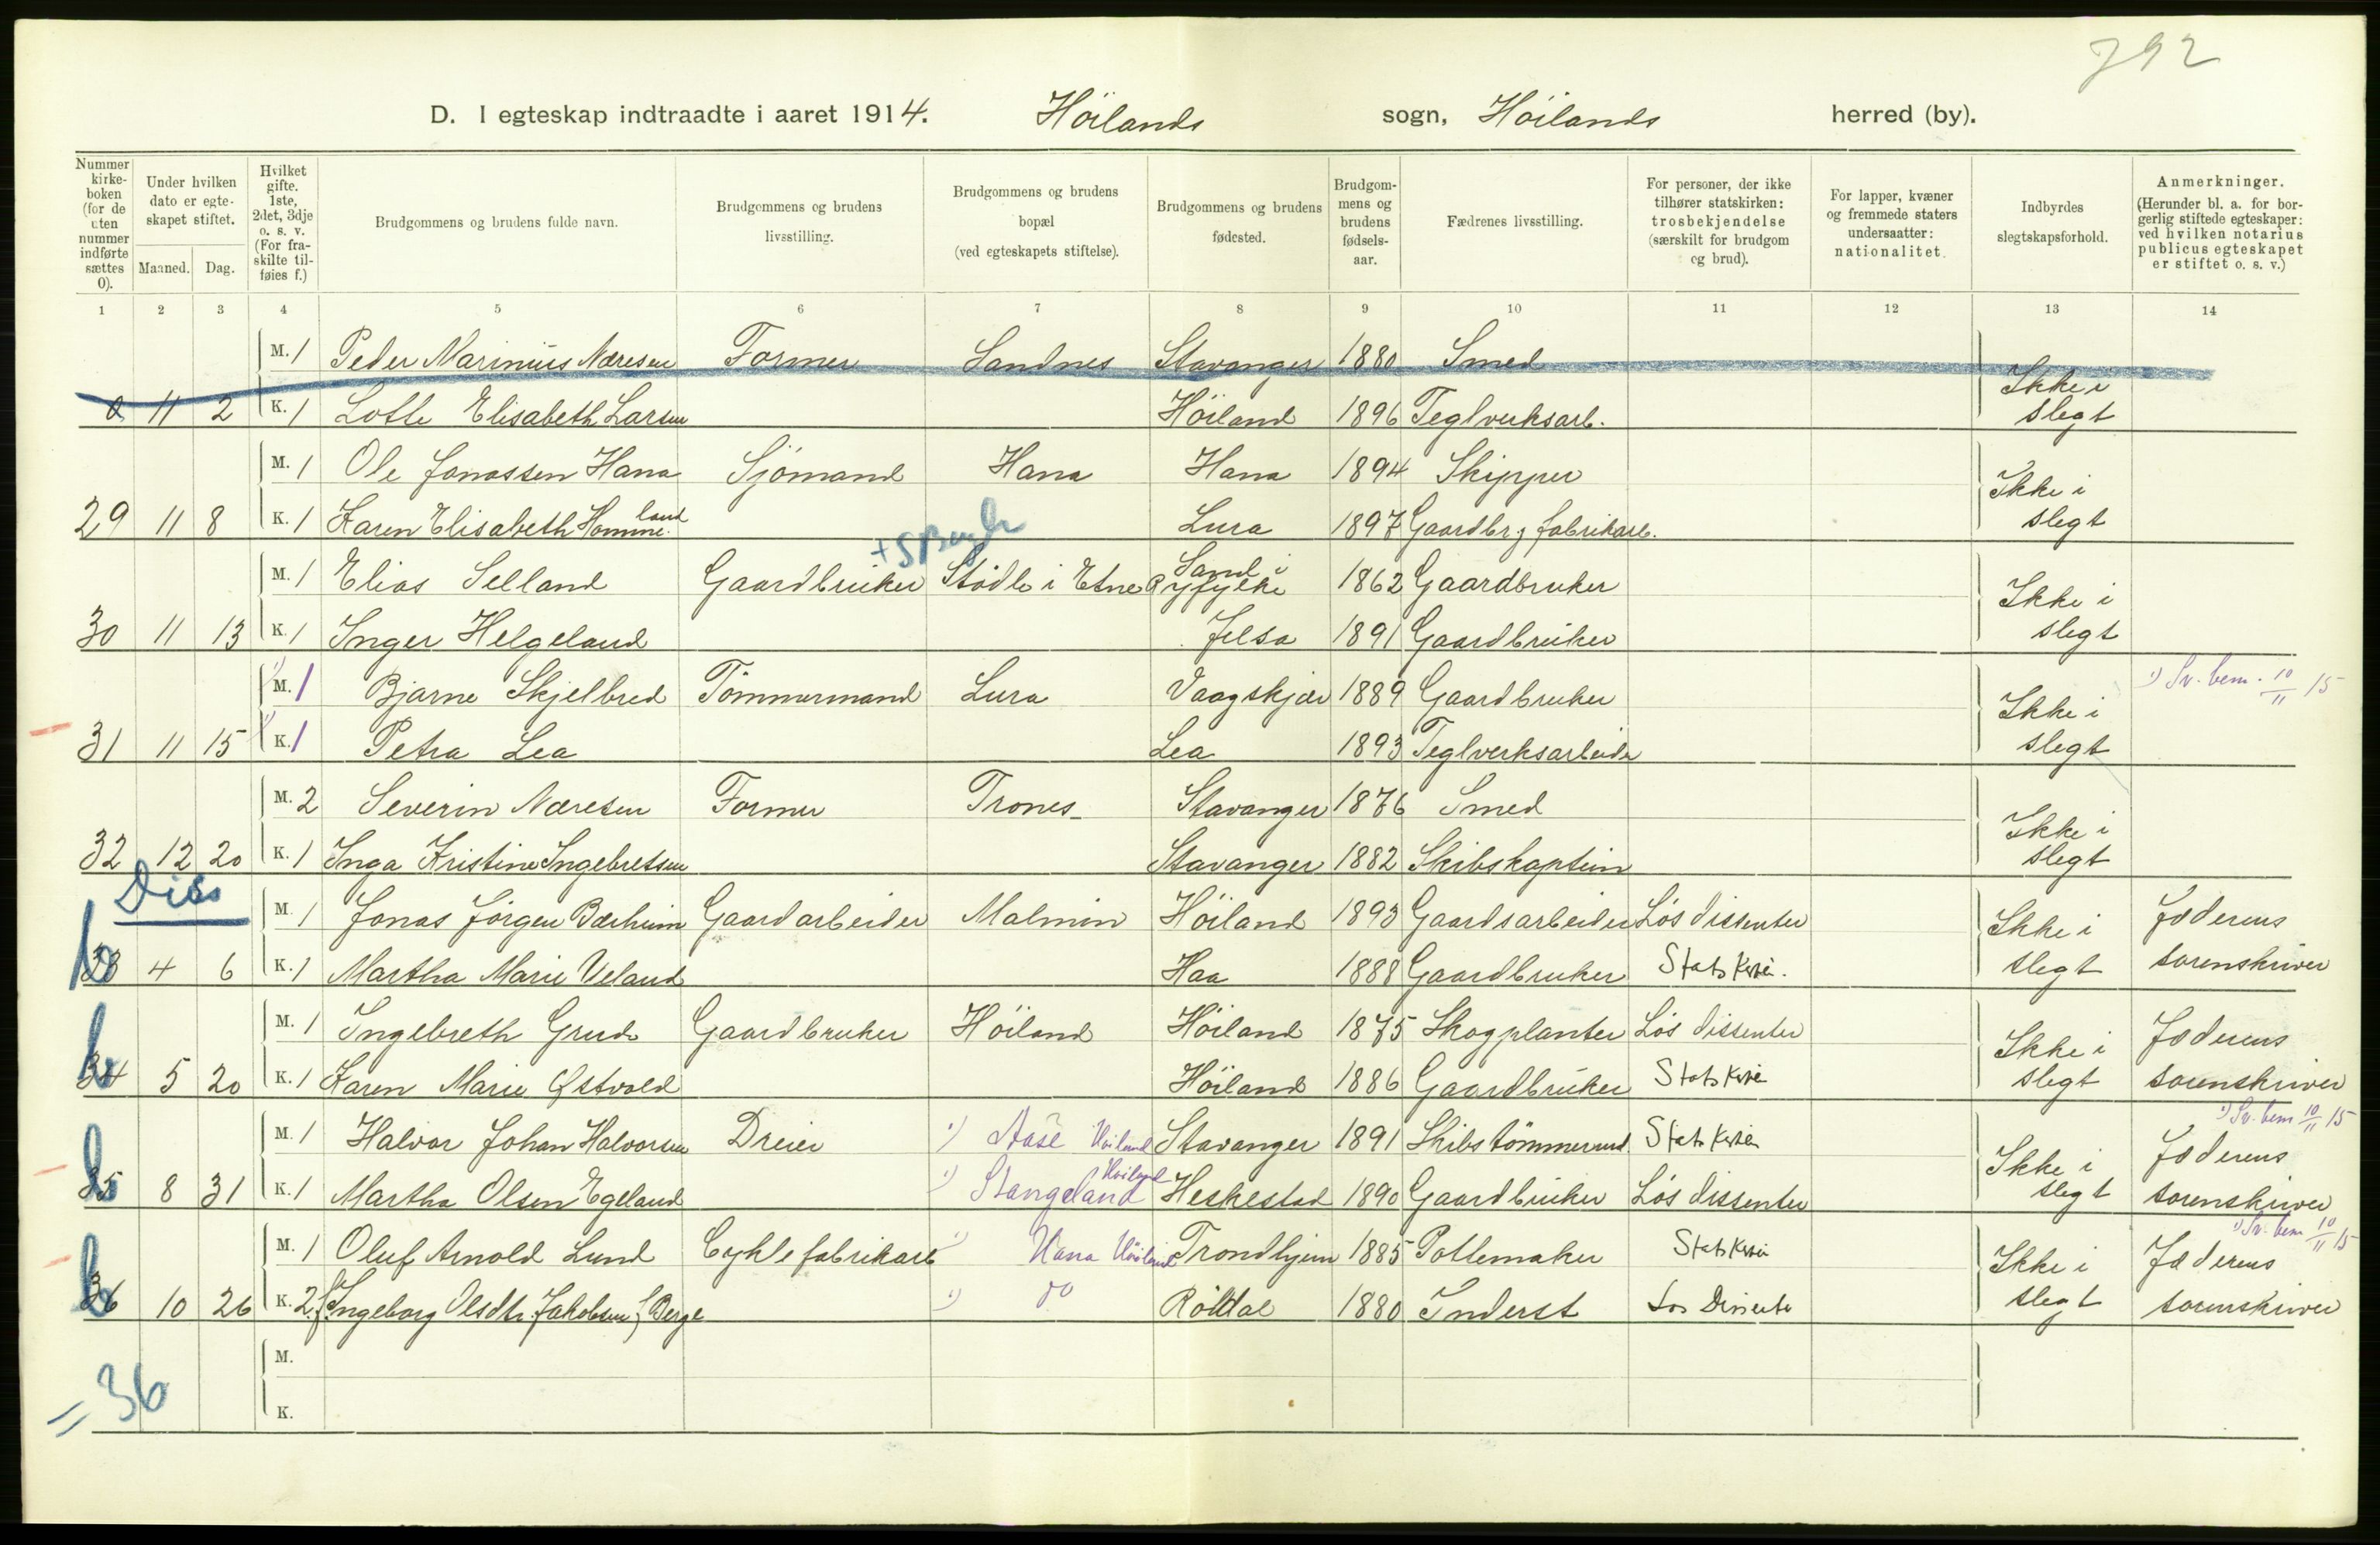 792
D. I egteskap indtraadte i aaret 1914. Höilands sogn, Höilands herred (by).
Nummer kirke-boken (for de uten nummer indførte sættes 0).
Under hvilken dato er egte-skapet stiftet.
Maaned. Dag.
Hvilket gifte. 1ste, 2det, 3dje o. s. v. (For fra-skilte til-føies f.)
Brudgommens og brudens fulde navn.
Brudgommens og brudens livsstilling.
Brudgommens og brudens bopæl (ved egteskapets stiftelse).
Brudgommens og brudens fødested.
Brudgom-mens og brudens fødsels-aar.
Fædrenes livsstilling.
For personer, der ikke tilhører statskirken: trosbekjendelse (særskilt for brudgom og brud).
For lapper, kvæner og fremmede staters undersaatter: nationalitet.
Indbyrdes slegtskapsforhold.
Anmerkninger. (Herunder bl. a. for bor-gerlig stiftede egteskaper: ved hvilken notarius publicus egteskapet er stiftet o. s. v.)
1 2 3 4 5 6 7 8 9 10 11 12 13 14
M. 1 Peder Marinius Næresen Former Sandnes Stavanger 1880 Smed
0 11 2 K. 1 Lotte Elisabeth Larsen Höiland 1896 Teglverksarb. Ikke i slegt
M. 1 Ole Jonassen Hana Sjömand Hana Hana 1894 Skipper
29 11 8 K. 1 Karen Elisabeth Hommeland Lura 1897 Gaardbr. & fabrikarb. Ikke i slegt
M. 1 Elias Selland Gaardbruker Stødle i Etne Sand i Ryfylke 1862 Gaardbruker
30 11 13 K. 1 Inger Helgeland Jelsa 1891 Gaardbruker Ikke i slegt
1) M. 1 Bjarne Skjelbred Tömmermand Lura Vaagskjær 1889 Gaardbruker 1) Sv. bem. 10/11 15
31 11 15 1) K. 1 Petra Lea Lea 1893 Teglverksarbeider Ikke i slegt
M. 2 Severin Næresen Former Trones Stavanger 1876 Smed
32 12 20 K. 1 Inga Kristine Ingebretsen Stavanger 1882 Skibskaptein Ikke i slegt
Diss
M. 1 Jonas Jörgen Bærheim Gaardarbeider Malmin Höiland 1893 Gaardsarbeider Lös dissenter Jæderens
b 33 4 6 K. 1 Martha Marie Veland Haa 1888 Gaardbruker Statskirken. Ikke i slegt sorenskriver
M. 1 Ingebreth Grude Gaardbruker Höiland Höiland 1875 Skogplanter Lös dissenter Jæderens
b 34 5 20 K. 1 Karen Marie Østvold Höiland 1886 Gaardbruker Statskirken Ikke i slegt sorenskriver
1) Sv. bem 10/11 15
M. 1 Halvor Johan Halvorsen Dreier 1) Aase Höiland Stavanger 1891 Skibstömmermd. Statskirken Jæderens
b 35 8 31 K. 1 Martha Olsen Egeland 1) Stangeland Höiland Heskestad 1890 Gaardbruker Lös dissenter Ikke i slegt sorenskriver
1) Sv. bem 10/11 15
M. 1 Oluf Arnold Lund Cyklefabrikarb 1) Hana Höiland Trondhjem 1885 Pottemaker Statskirken Jæderens
b 36 10 26 K. 2 f. Ingeborg Olsdtr. Jakobsen f. Berge 1) do Röldal 1880 Inderst Lös Dissenter Ikke i slegt sorenskriver
M.
= 36
K.